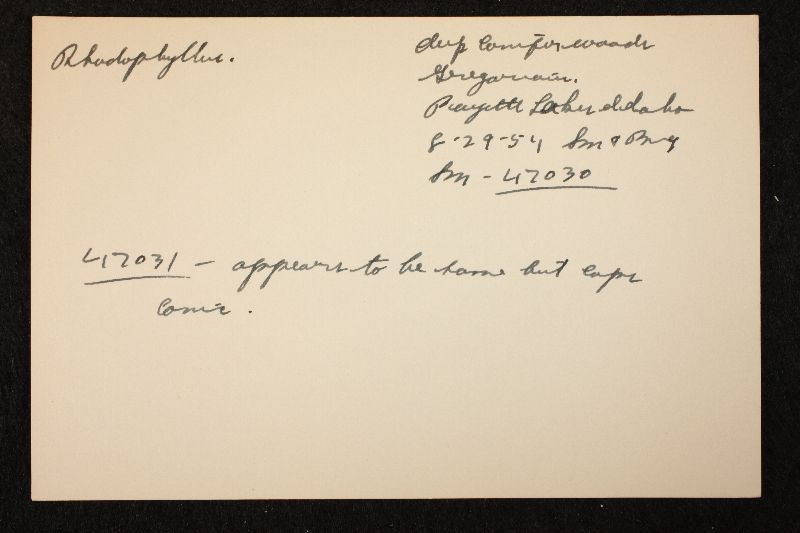 Rhodophyllus.
deep conifer woods
Gregarious.
Payette Lakes Idaho
8-29-54 Sm &
Sm - 47030
47031 - appears to be same but caps
conic.